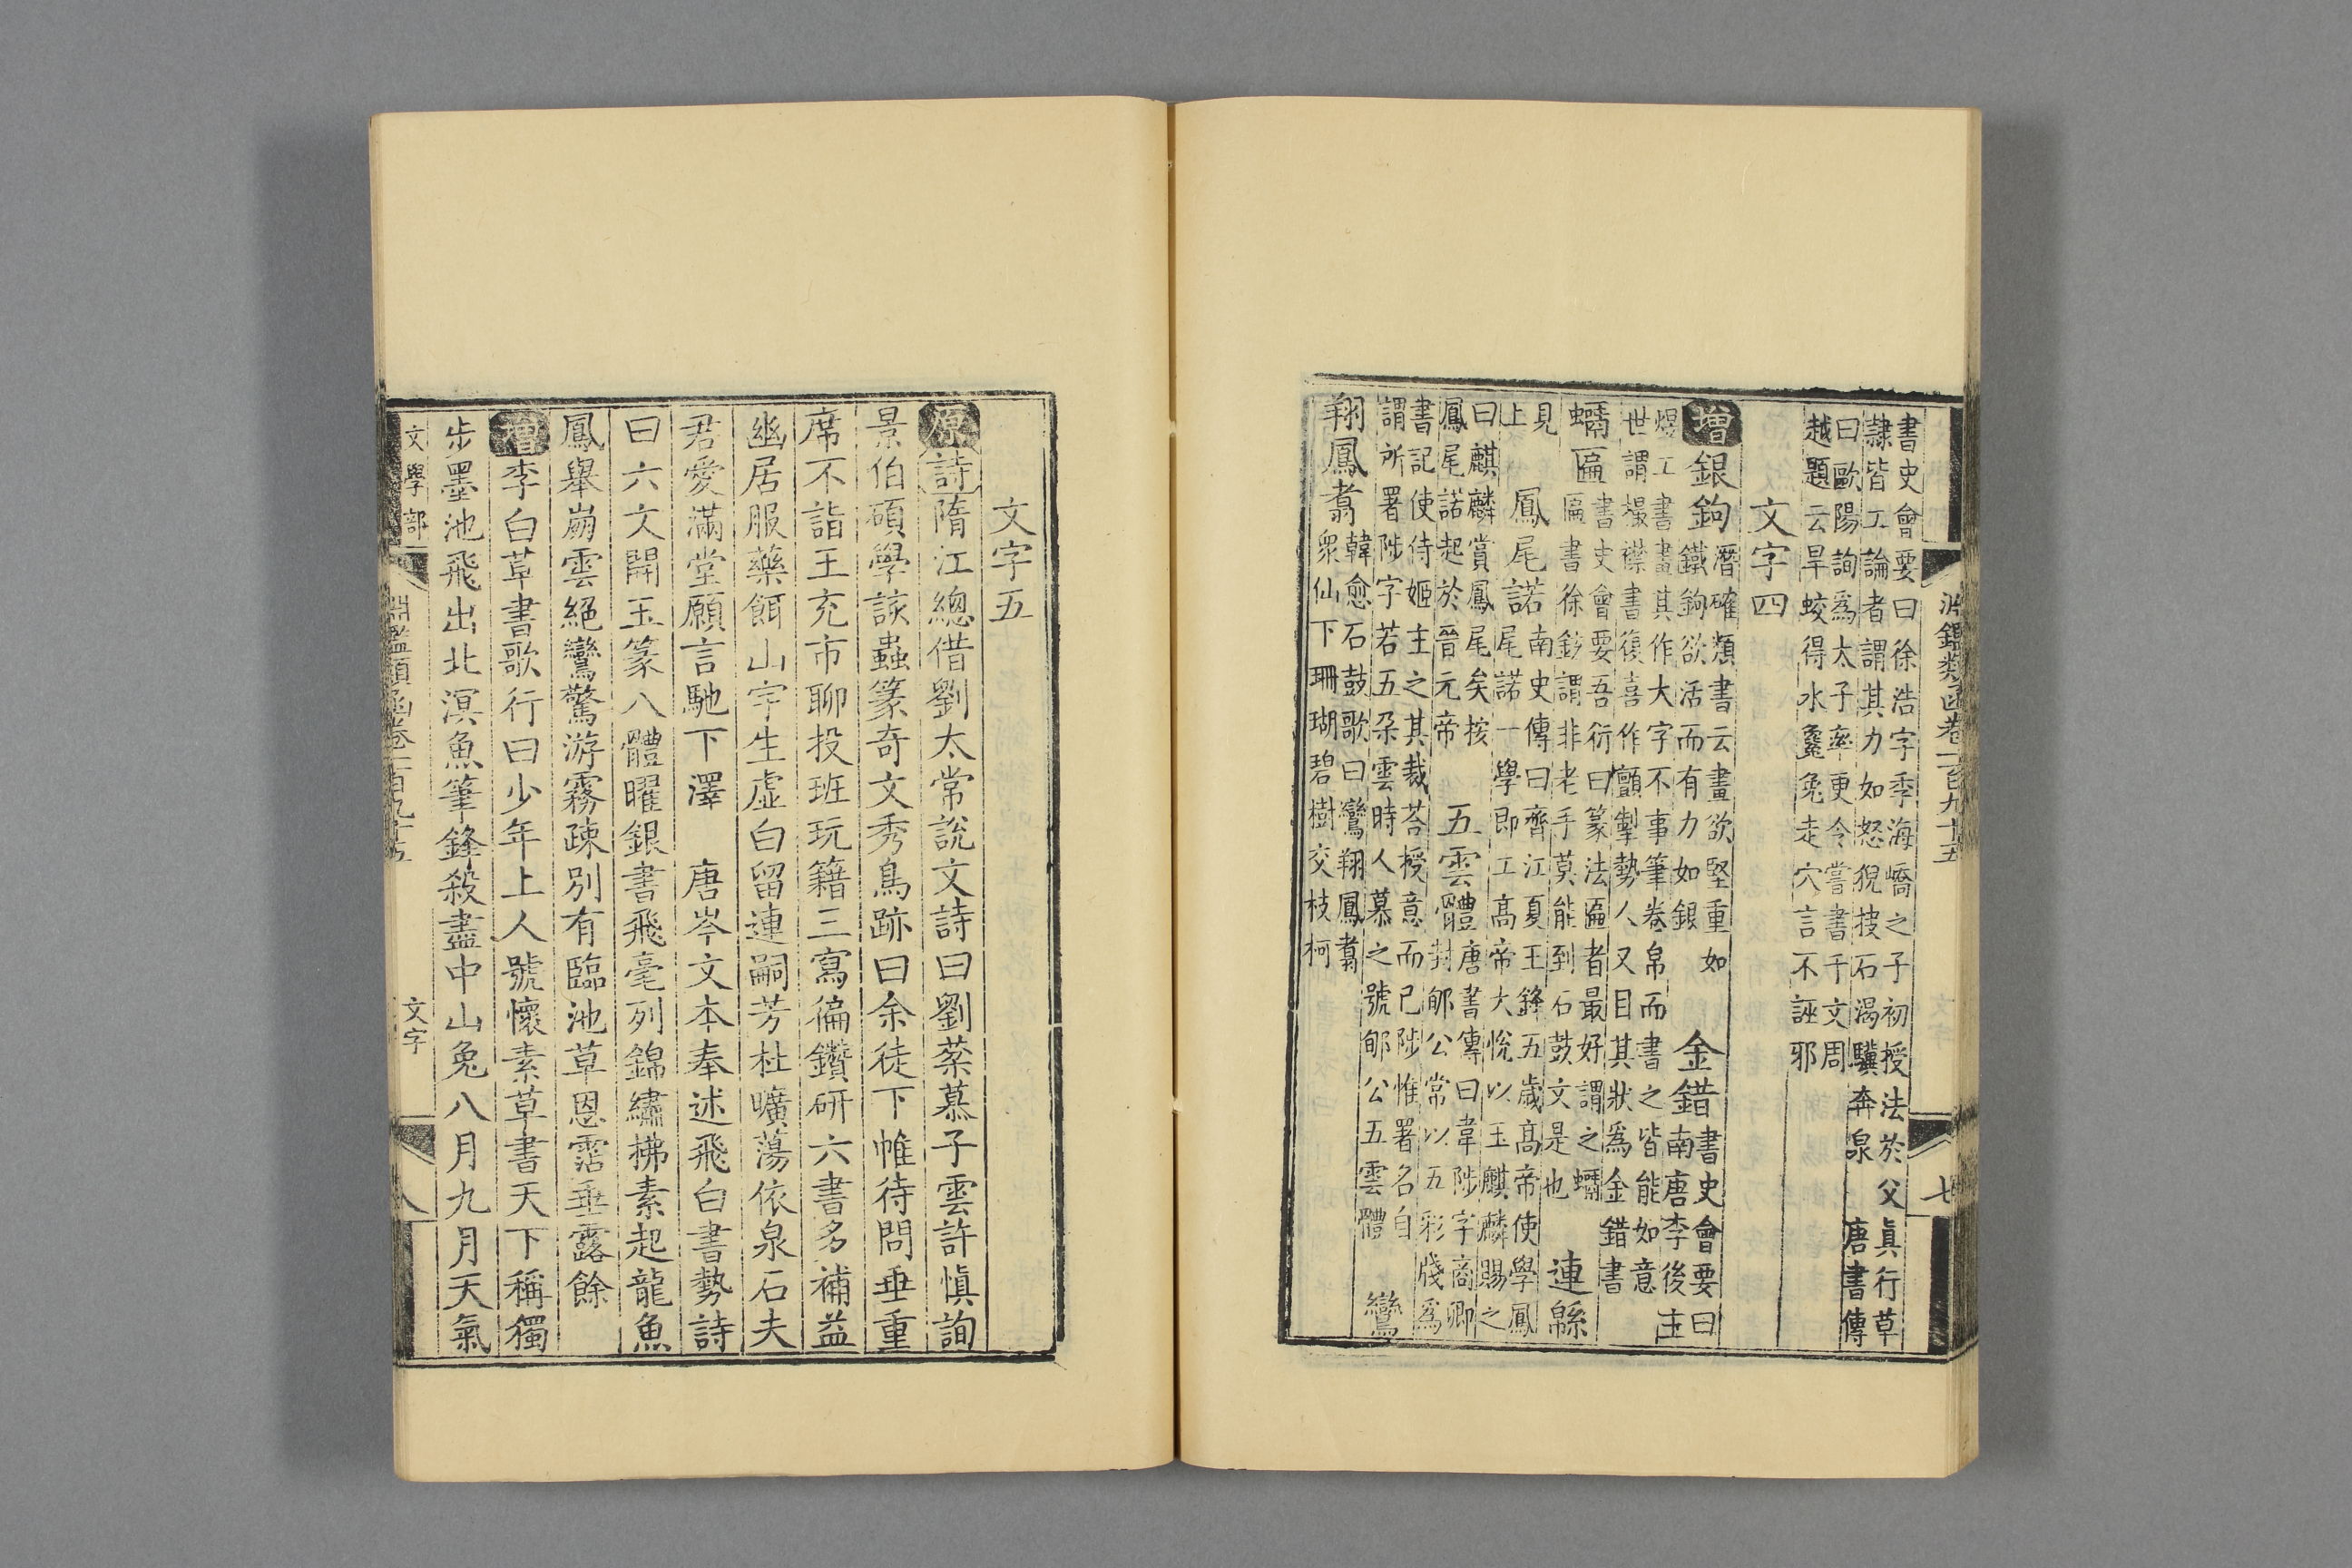 淵鑑類函卷一百九十五 七
書史會要曰徐浩字季海嶠之子初授法於父眞行草
隸皆工論者謂其力如怒猊抉石渴驥奔泉 唐書傳
曰歐陽詢爲太子率更令嘗書千文周
越題云旱蛟得水毚兔走穴言不誣邪
文字四
增銀鉤 厝確類書云畫欲堅重如 鐵鉤欲活而有力如銀 金錯 書史會要曰 南唐李後主
煜工書畫其作大字不事筆卷帛而書之皆能如意
世謂撮襟書復喜作顫掣勢人又目其狀爲金錯書
蠣匾 書史會要吾衍曰篆法匾者最好謂之蠣 匾書徐鉉謂非老手莫能到石鼓文是也 連緜
見上 鳳尾諾 南史傳曰齊江夏王鋒五歲高帝使學鳳 尾諾一學即工高帝大悅以玉麒麟賜之
曰麒麟賞鳳尾矣按 鳳尾諾起於晉元帝 五雲體 唐書傳曰韋陟字商卿 封郇公常以五彩牋爲
書記使侍姬主之其裁荅授意而已陟惟署名自 謂所署陟字若五朶雲時人慕之號郇公五雲體 鸞
翔鳳翥 韓愈石鼓歌曰鸞翔鳳翥 衆仙下珊瑚碧樹交枝柯
文字五
原詩隋江總借劉太常說文詩曰劉棻慕子雲許愼詢
景伯碩學該蟲篆奇文秀鳥跡曰余徒下帷待問垂重
席不詣王充市聊投班玩籍三寫徧鑽研六書多補益
幽居服藥餌山宇生虛白留連嗣芳杜曠蕩依泉石夫
君愛滿堂願言馳下澤 唐岑文本奉述飛白書勢詩
曰六文開玉篆八體曜銀書飛毫列錦繡拂素起龍魚
鳳舉崩雲絕鸞驚游霧疎別有臨池草恩霑垂露餘
增李白草書歌行曰少年上人號懷素草書天下稱獨
步墨池飛出北溟魚筆鋒殺盡中山兔八月九月天氣
文學部 淵鑑類函卷一百九十五 文字 八